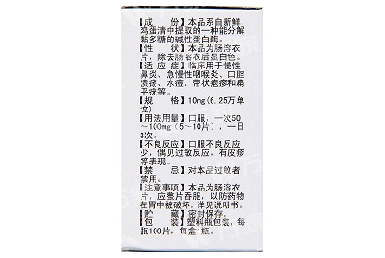 【成　份】本品系自新鲜
鸡蛋清中提取的一种能分解
黏多糖的碱性蛋白酶。
【性　状】本品为肠溶衣
片，除去肠溶衣后显白色。
【适应症】临床用于慢性
鼻炎、急慢性咽喉炎、口腔
溃疡、水痘、带状疱疹和扁
平疣等。
【规　格】10mg(6.25万单
位)
【用法用量】口服，一次50
～100mg（5～10片），一日
3次。
【不良反应】口服不良反应
少，偶见过敏反应，有皮疹
等表现。
【禁　忌】对本品过敏者
禁用。
【注意事项】本品为肠溶衣
片，应整片吞服，以防药物
在胃中被破坏。详见说明书。
【贮　藏】密封保存。
【包　装】塑料瓶包装，每
瓶100片，每盒1瓶。